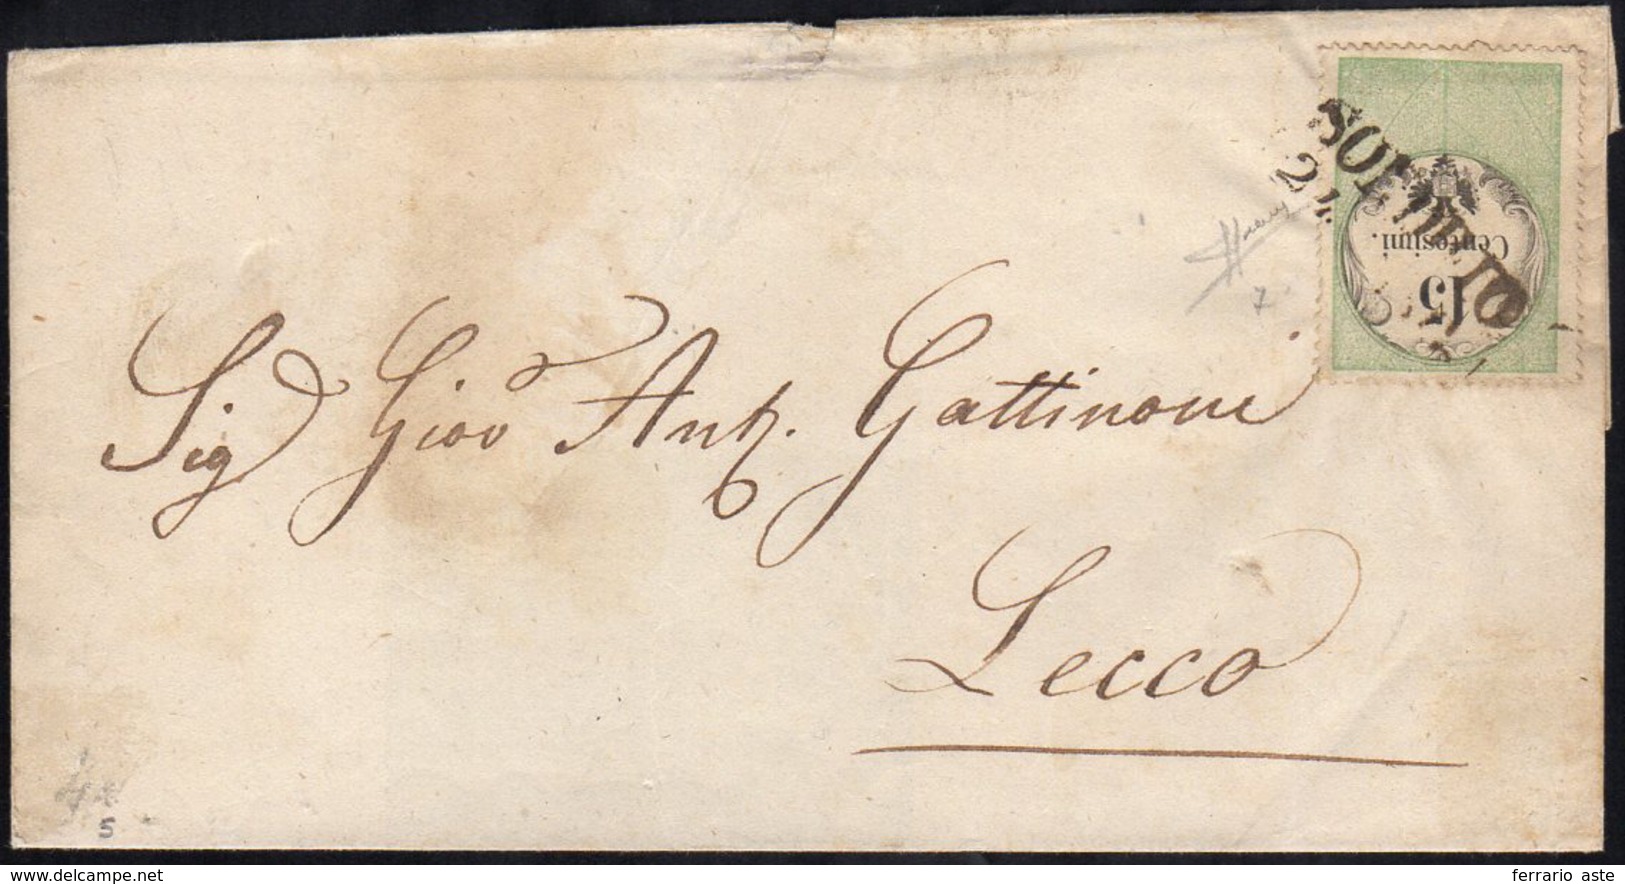 15
Centesimi.
Sig Giov Ant. Gattinoni
Lecco
7
5
www.delcampe.net
ferrario aste